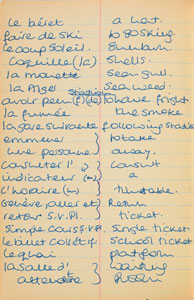 le béret a hat.
faire de ski to go skiing.
le coup soleil. Sunburn
Coquille (la) shells.
la mouette Sea gull.
la Sea weed.
avoir peur (f)(de) to have fright
la fumée the smoke
la gare suivante following station
emmener to take
une personne away.
consulter l' Consult
indicateur (m) a
l'horaire (m) timetable.
aller et Return
retour S.V.P. ticket.
Simple cours S.V.P. Single ticket
le billet collectif. School ticket
le quai platform
la salle d' waiting
attendre room